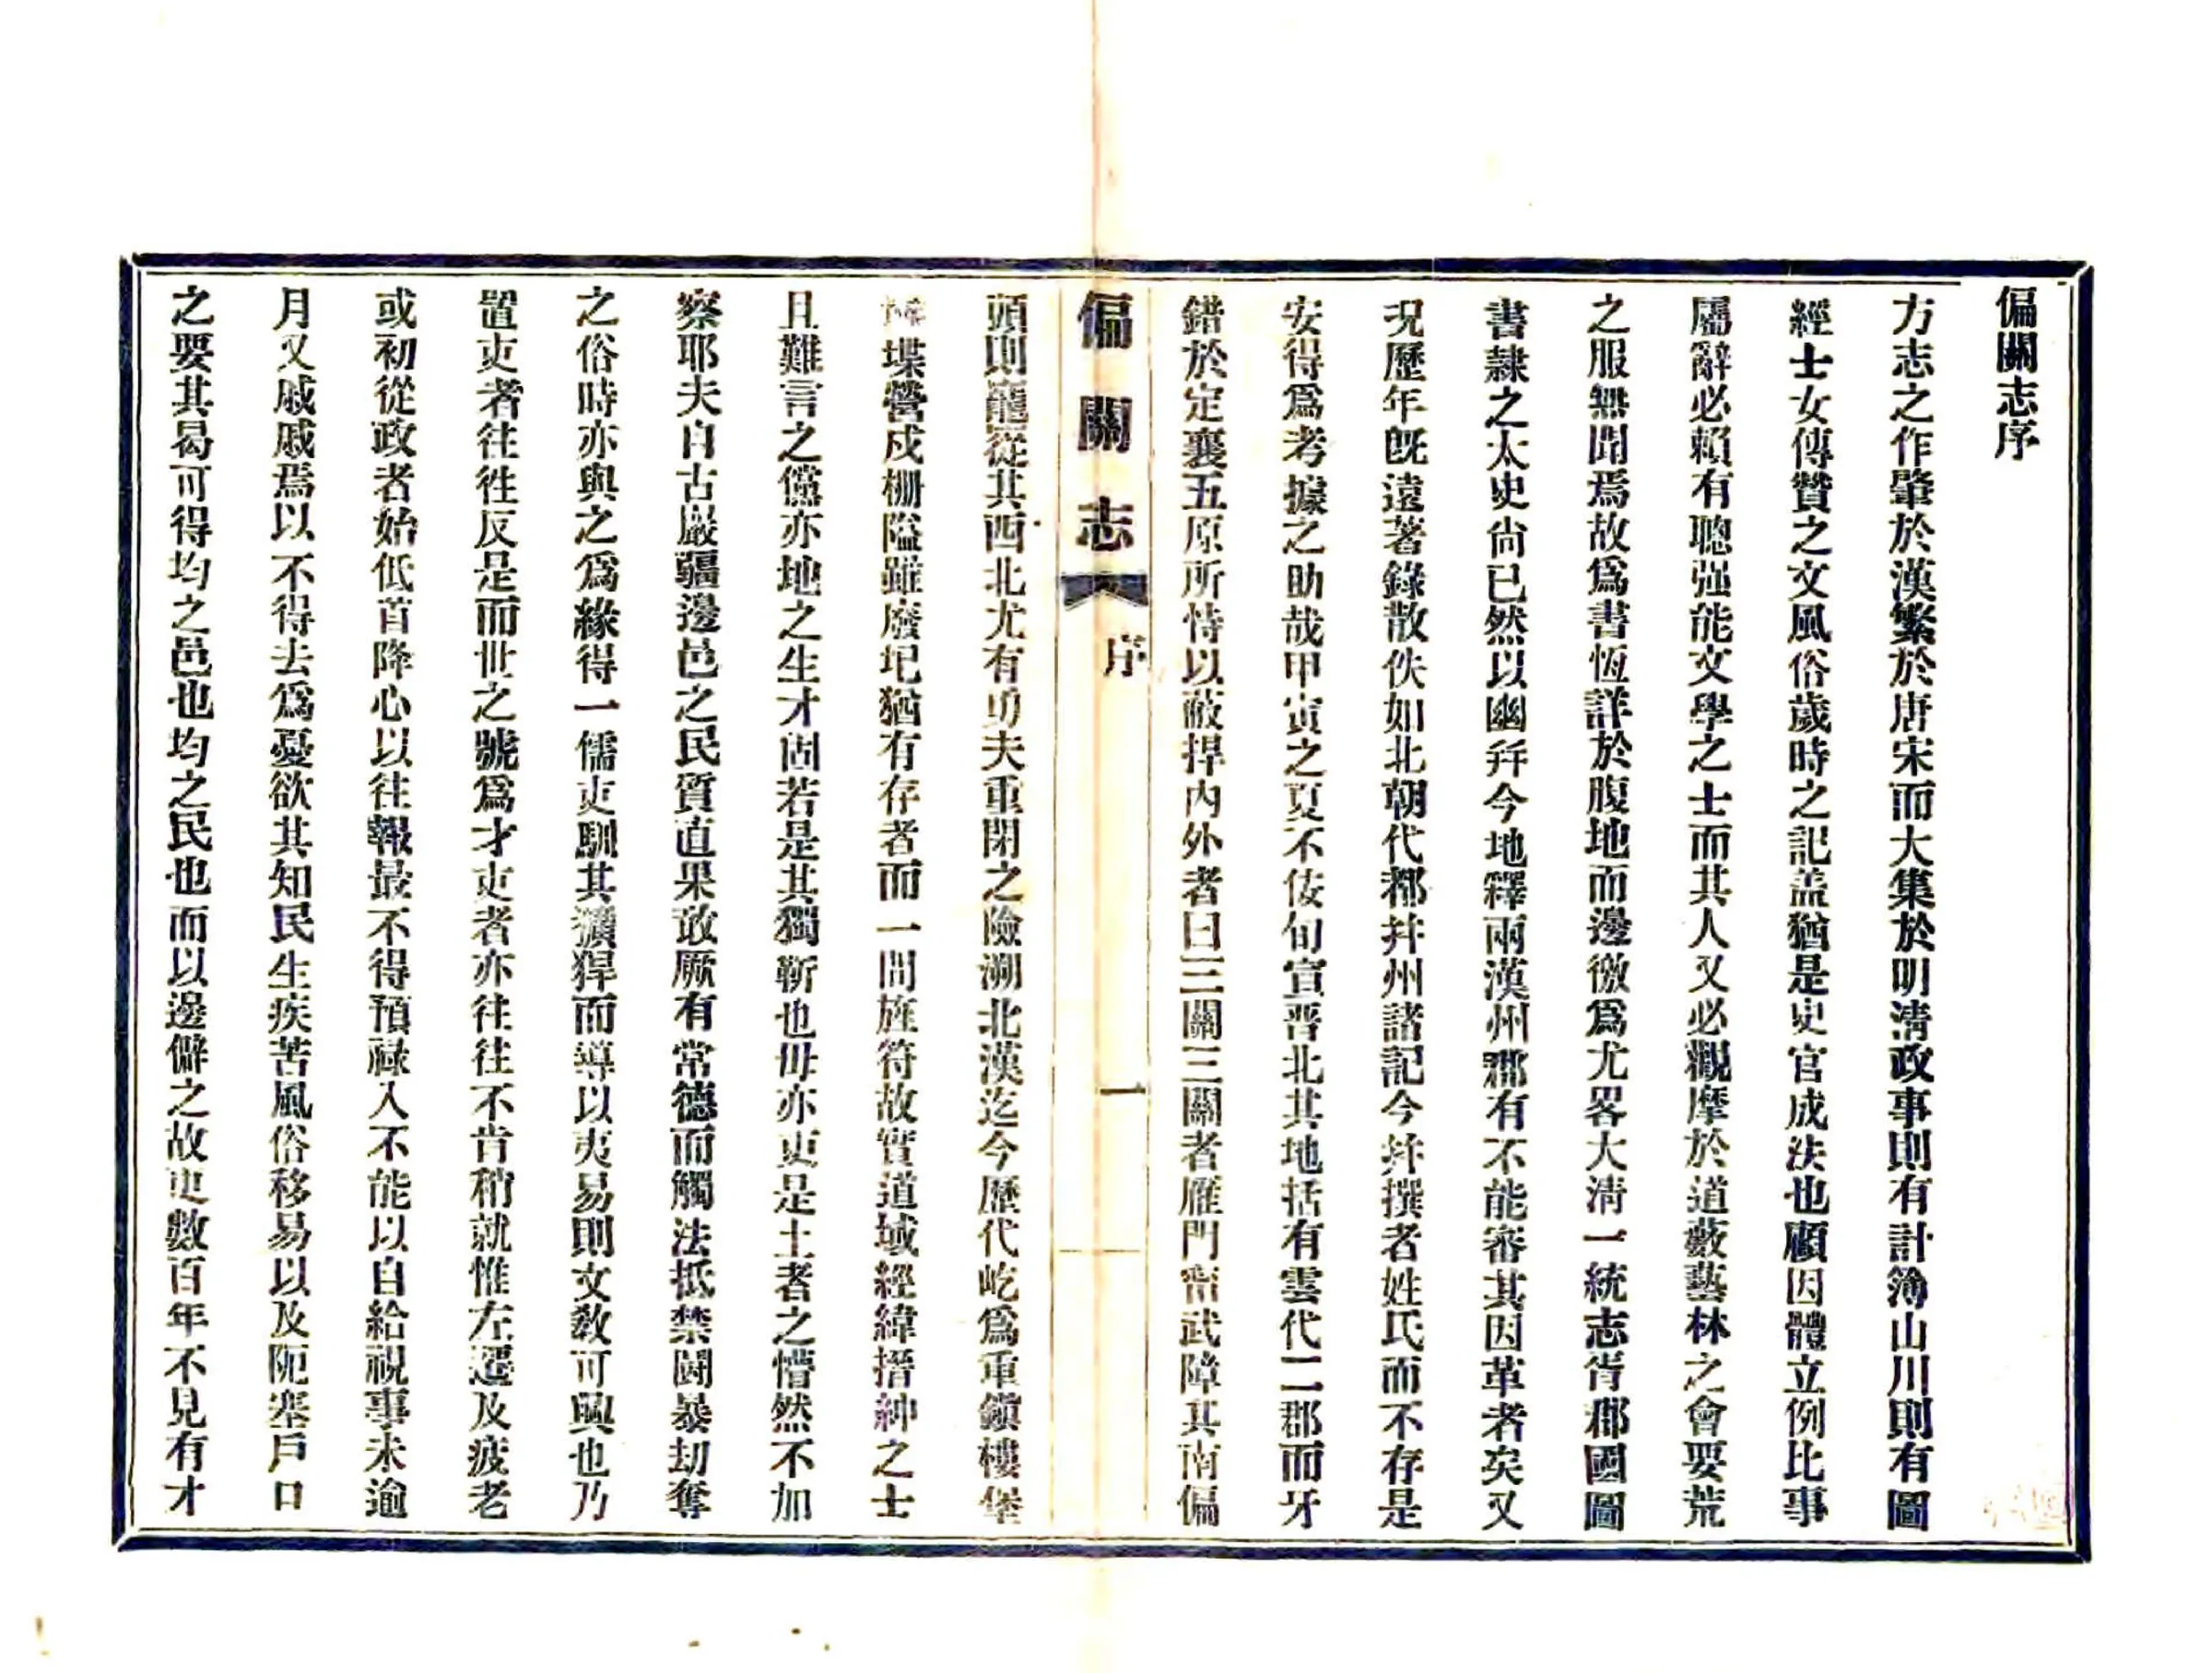 偏關志序
方志之作肇於漢繁於唐宋而大集於明清政事則有計簿山川則有圖
經士女傳贊之文風俗歲時之記盖猶是史官成法也顧因體立例比事
屬辭必賴有聰强能文學之士而其人又必觀摩於道藪藝林之會要荒
之服無聞焉故爲書恆詳於腹地而邊徼爲尤畧大清一統志胥郡國圖
書隸之太史尙已然以幽幷今地釋兩漢州郡有不能審其因革者矣又
况歷年旣遠著錄散佚如北朝代都幷州諸記今幷撰者姓氏而不存是
安得爲考據之助哉甲寅之夏不佞旬宣晋北其地括有雲代二郡而牙
錯於定襄五原所恃以蔽捍內外者曰三關三關者雁門甯武障其南偏
偏關志
序
一
頭則巃嵸其西北尤有勇夫重閉之險溯北漢迄今歷代屹爲重鎭樓堡
堞營戍柵隘雖廢圮猶有存者而一問旌符故實道域經緯搢紳之士
且難言之儻亦地之生才固若是其獨靳也毋亦吏是土者之懵然不加
察耶夫自古嚴疆邊邑之民質直果敢厥有常德而觸法抵禁鬭暴刧奪
之俗時亦與之爲緣得一儒吏馴其獷猂而導以夷易則文敎可興也乃
置吏者往往反是而世之號爲才吏者亦往往不肯稍就惟左遷及疲老
或初從政者始低首降心以往報最不得預祿入不能以自給視事未逾
月又戚戚焉以不得去爲憂欲其知民生疾苦風俗移易以及阨塞戶口
之要其曷可得均之邑也均之民也而以邊僻之故吏數百年不見有才